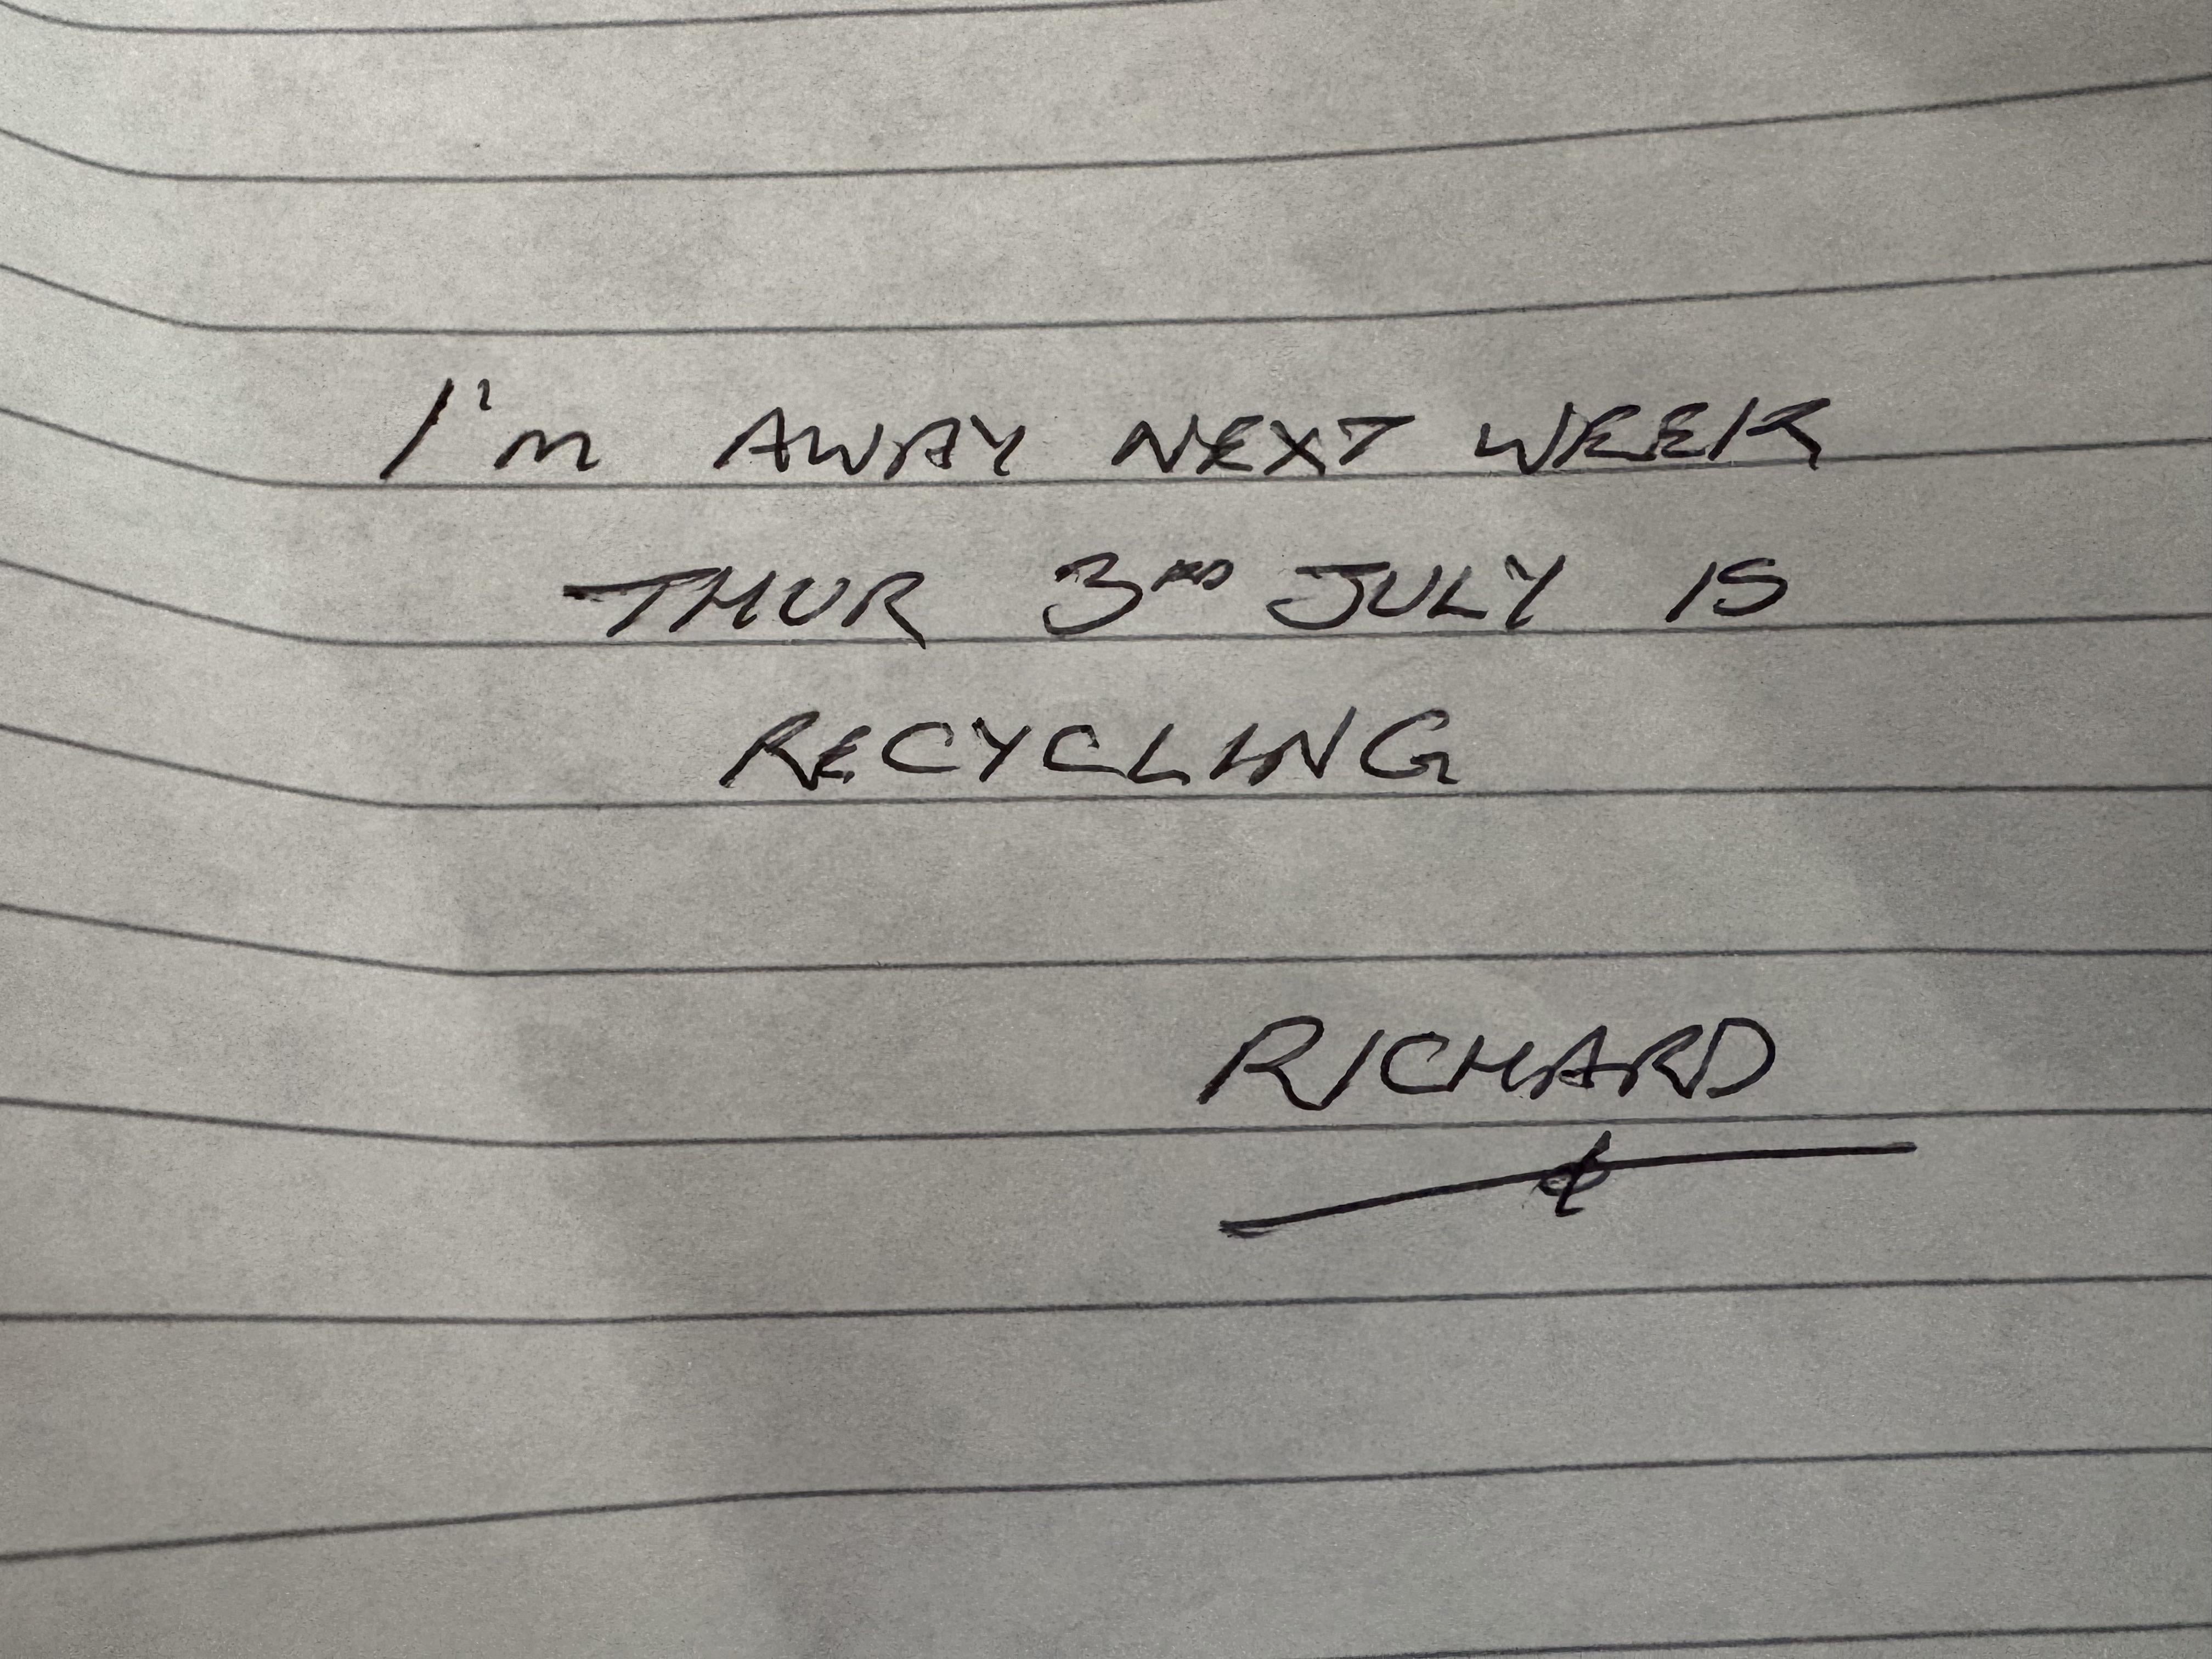 I'm AWAY NEXT WEEK
THUR 3RD JULY IS
RECYCLING
RICHARD